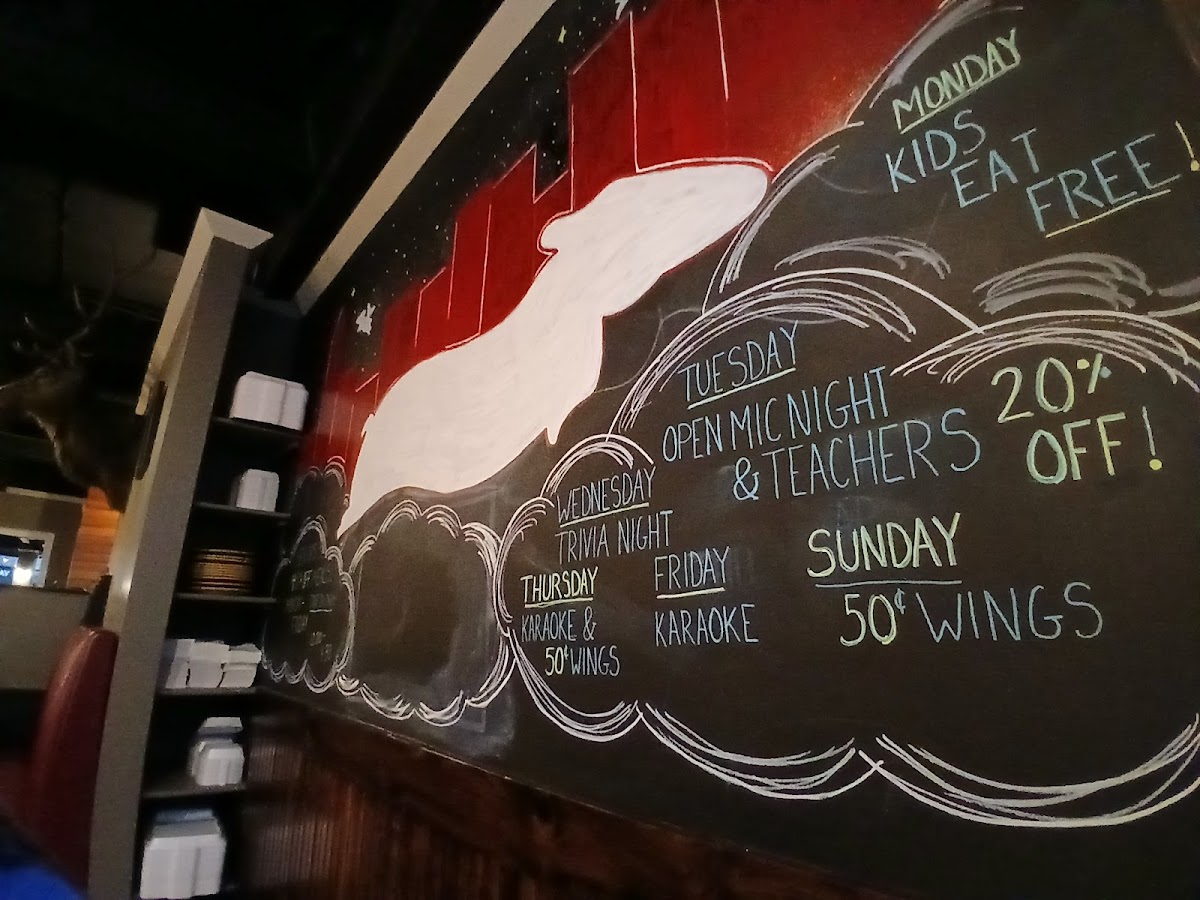 MONDAY
KIDS
EAT
FREE!
TUESDAY
OPEN MIC NIGHT
& TEACHERS
20%
OFF!
WEDNESDAY
TRIVIA NIGHT
THURSDAY
KARAOKE &
50¢ WINGS
FRIDAY
KARAOKE
SUNDAY
50¢ WINGS